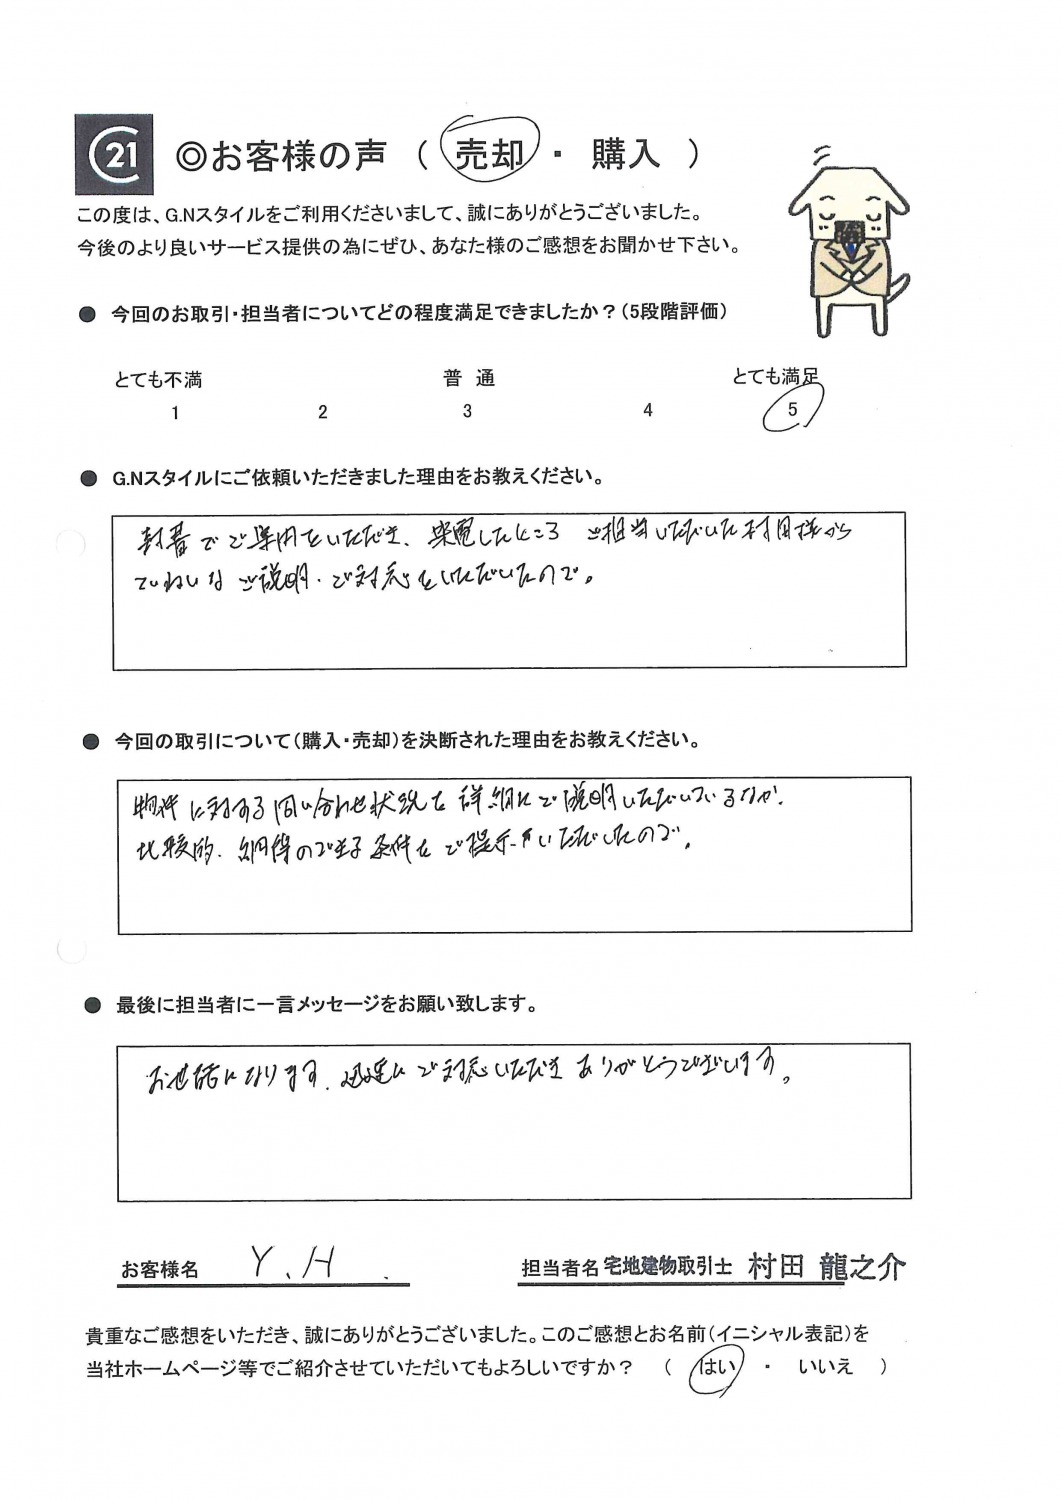 C21
◎お客様の声 ( 売却 ・ 購入 )
この度は、G.Nスタイルをご利用くださいまして、誠にありがとうございました。
今後のより良いサービス提供の為にぜひ、あなた様のご感想をお聞かせ下さい。
● 今回のお取引・担当者についてどの程度満足できましたか？(5段階評価)
とても不満 普 通 とても満足
1 2 3 4 5
● G.Nスタイルにご依頼いただきました理由をお教えください。
封書でご案内をいただき、架電したところ ご担当いただいた村田様から
ていねいな ご説明・ご対応をいただいたので。
● 今回の取引について(購入・売却)を決断された理由をお教えください。
物件に対する問い合わせ状況を詳細にご説明いただいているなか、
比較的、納得のできる条件をご提示いただいたので。
● 最後に担当者に一言メッセージをお願い致します。
お世話になります。迅速にご対応いただき ありがとうございます。
お客様名 Y.H. 担当者名 宅地建物取引士 村田 龍之介
貴重なご感想をいただき、誠にありがとうございました。このご感想とお名前(イニシャル表記)を
当社ホームページ等でご紹介させていただいてもよろしいですか？ ( はい ・ いいえ )